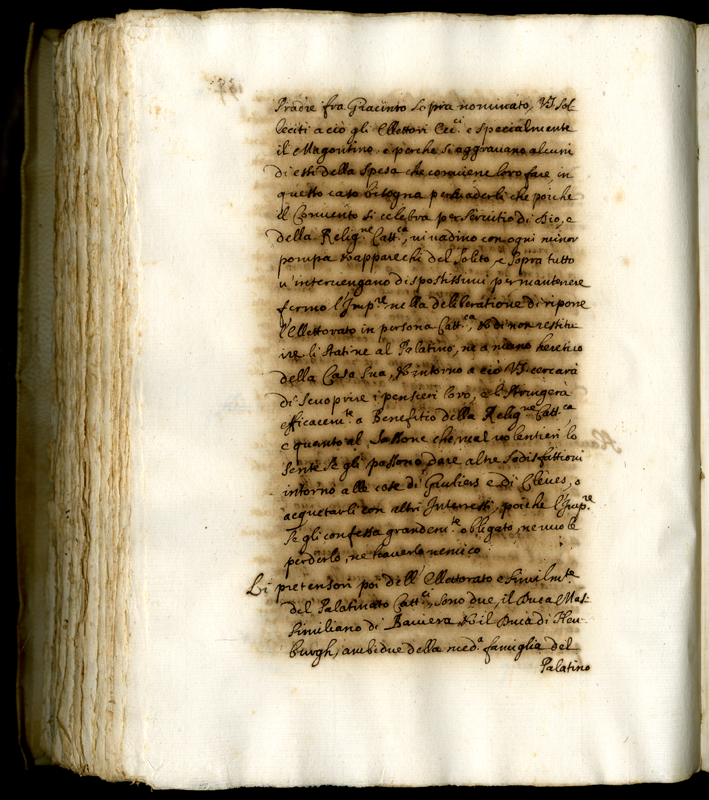 Pradre fra Giacinto sopra nominato, VS. sol-
leciti a ciò gli Ellettori Ecc.ci e specialmente
il Magontino, e perche si aggravano alcuni
di essi della spesa che conviene loro fare in
questo caso bisogna persuaderli che poiche
il Convento si celebra per servitio di Dio, e
della Relig.ne Catt.ca, vi vadino con ogni minor
pompa et apparechi del solito, e sopra tutto
v'intervengano dispostissimi per mantenere
fermo l'Imp.re nella deliberatione di ripone
l'Ellettorato in persona Catt.ca, et di non restitu-
ire li statine al Palatino, ne a mano heretico
della Casa sua, et intorno a ciò VS. cercarà
di scuoprire i pensieri loro, e li stringerà
efficacem.te a Benefitio della Relig.ne Catt.ca
e quanto al Sassone che mal volentieri lo
sente se gli possono dare altre sodisfattioni
intorno alle cose di Giuliers e di Cleves, o
acquetarli con altri Interessi, poiche l'Imp.re
se gli confessa grandem.te obbligato, ne vuol
perderlo, ne haverlo nemico.
Li pretensori poi dell'Ellettorato e similm.te
del Palatinato Catt.ci, sono due, il Duca Mas-
similiano di Baviera et il Duca di Neu-
burgh, ambidue della med.a famiglia del
Palatino